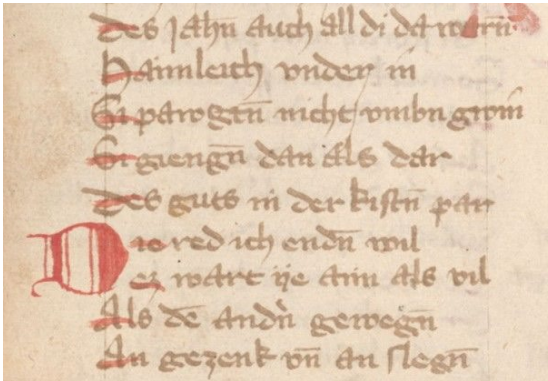 Des jahn̄ auch all di da warn̄
Haimleich vnder in
Si parogtn̄ nicht vmbn gwin̄
Si giengn̄ dan als dar
Des guts in der kistn̄ par
Die red ich endn̄ wil
Ez wart ÿe aim als vil
Als dē andn̄ gewegn̄
An gezenk vn̄ an slegn̄